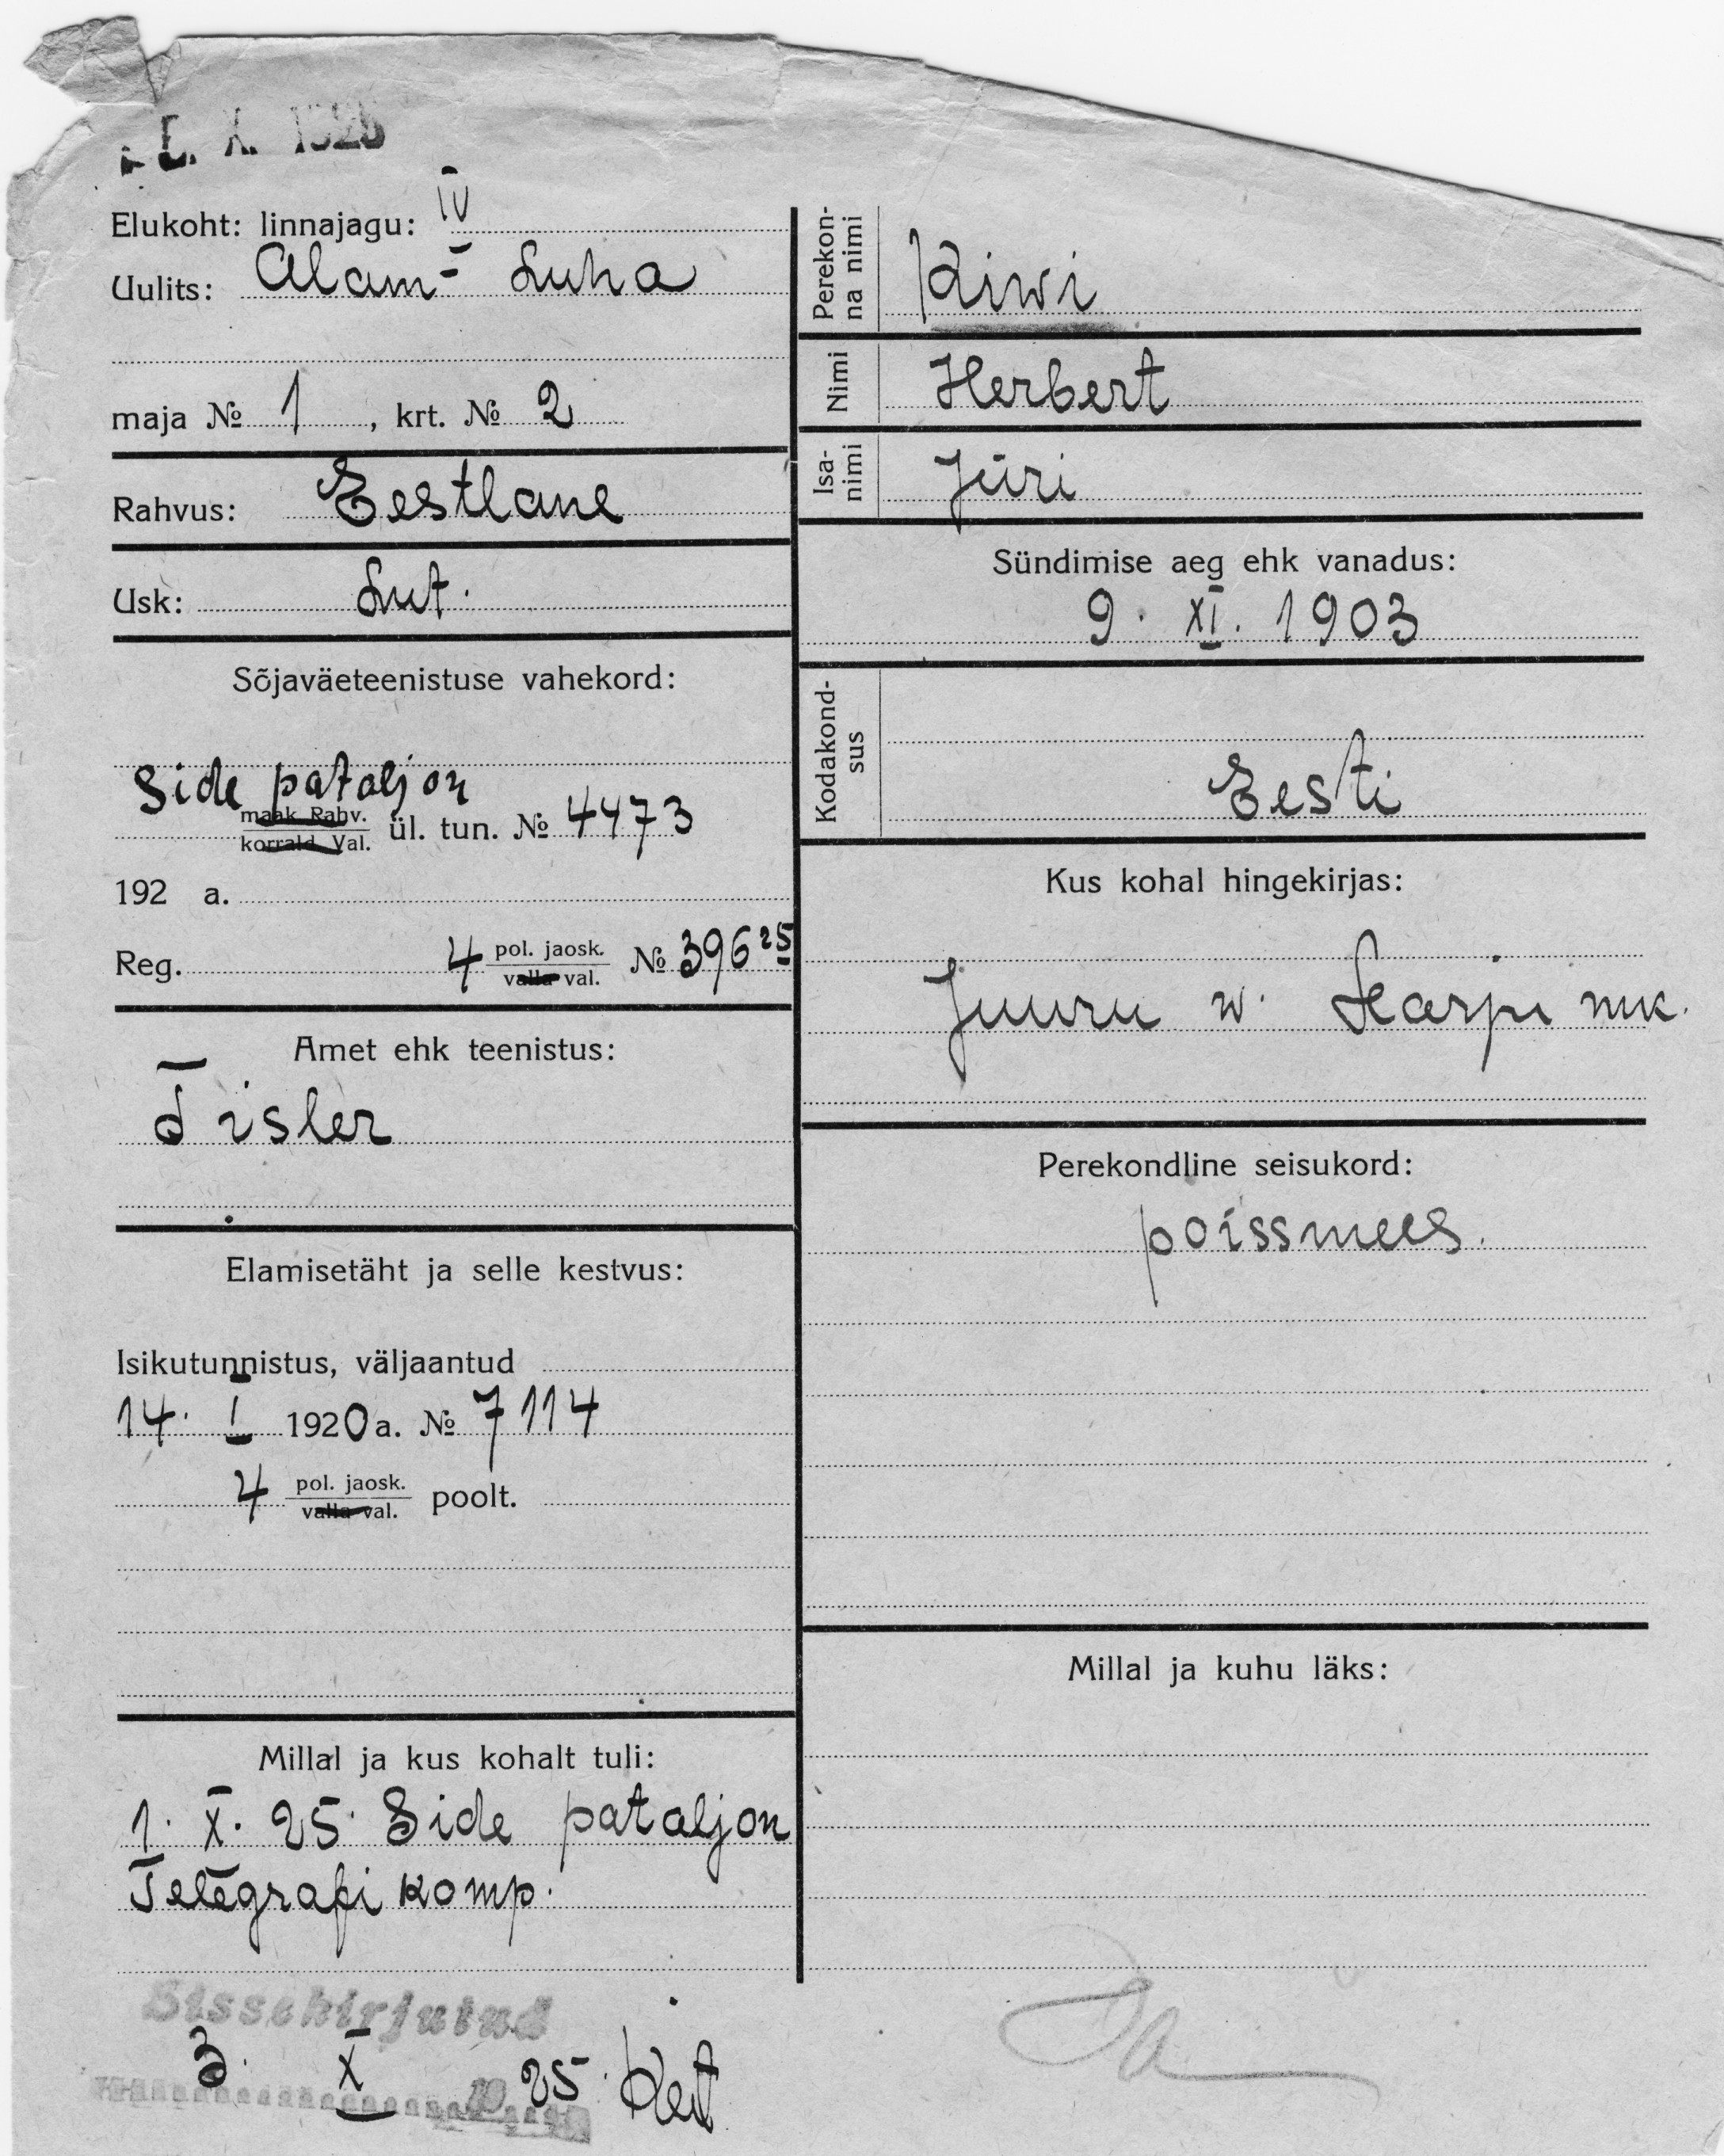 X. 192
Elukoht: linnajagu: IV
Uulits: Alam- Luha
maja № 1, krt. № 2
Rahvus: Eestlane
Usk: Lut.
Sõjaväeteenistuse vahekord:
Side pataljon
maak. Rahv.
korrald. Val. ül. tun. № 4473
192 a.
Reg. 4 pol. jaosk. № 396 25
valla val.
Amet ehk teenistus:
Tisler
Elamisetäht ja selle kestvus:
Isikutunnistus, väljaantud
14. I 1920 a. № 7114
4 pol. jaosk. poolt.
valla val.
Millal ja kus kohalt tuli:
1. X. 25. Side pataljon
Telegrafi komp.
Sissekirjutud
3. X 19 25.
Perekon-
na nimi Kiwi
Nimi Herbert
Isa-
nimi Jüri
Sündimise aeg ehk vanadus:
9. XI. 1903
Kodakond-
sus Eesti
Kus kohal hingekirjas:
Juuru w. Harju mk.
Perekondline seisukord:
poissmees.
Millal ja kuhu läks: